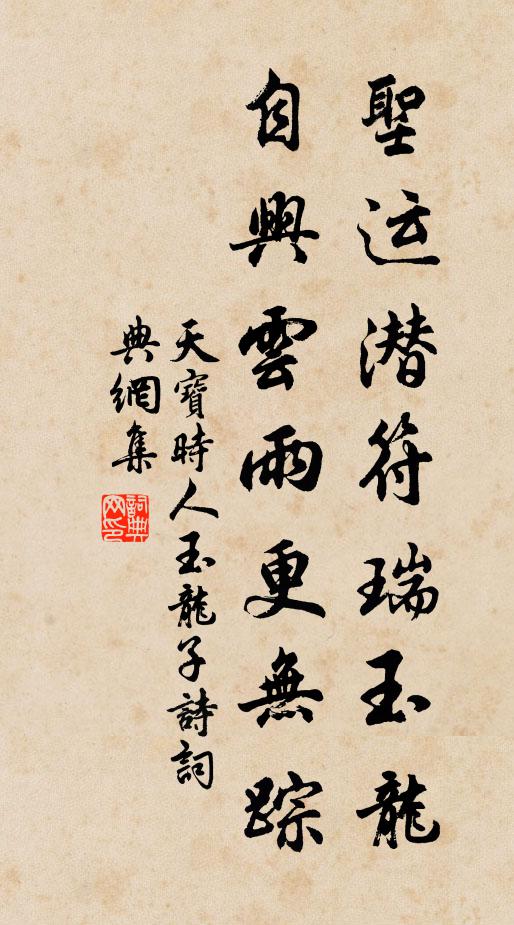 聖运潜符瑞玉龍
自興雲雨更無踪
天寶時人玉龍子詩詞
典網集
詞典網印